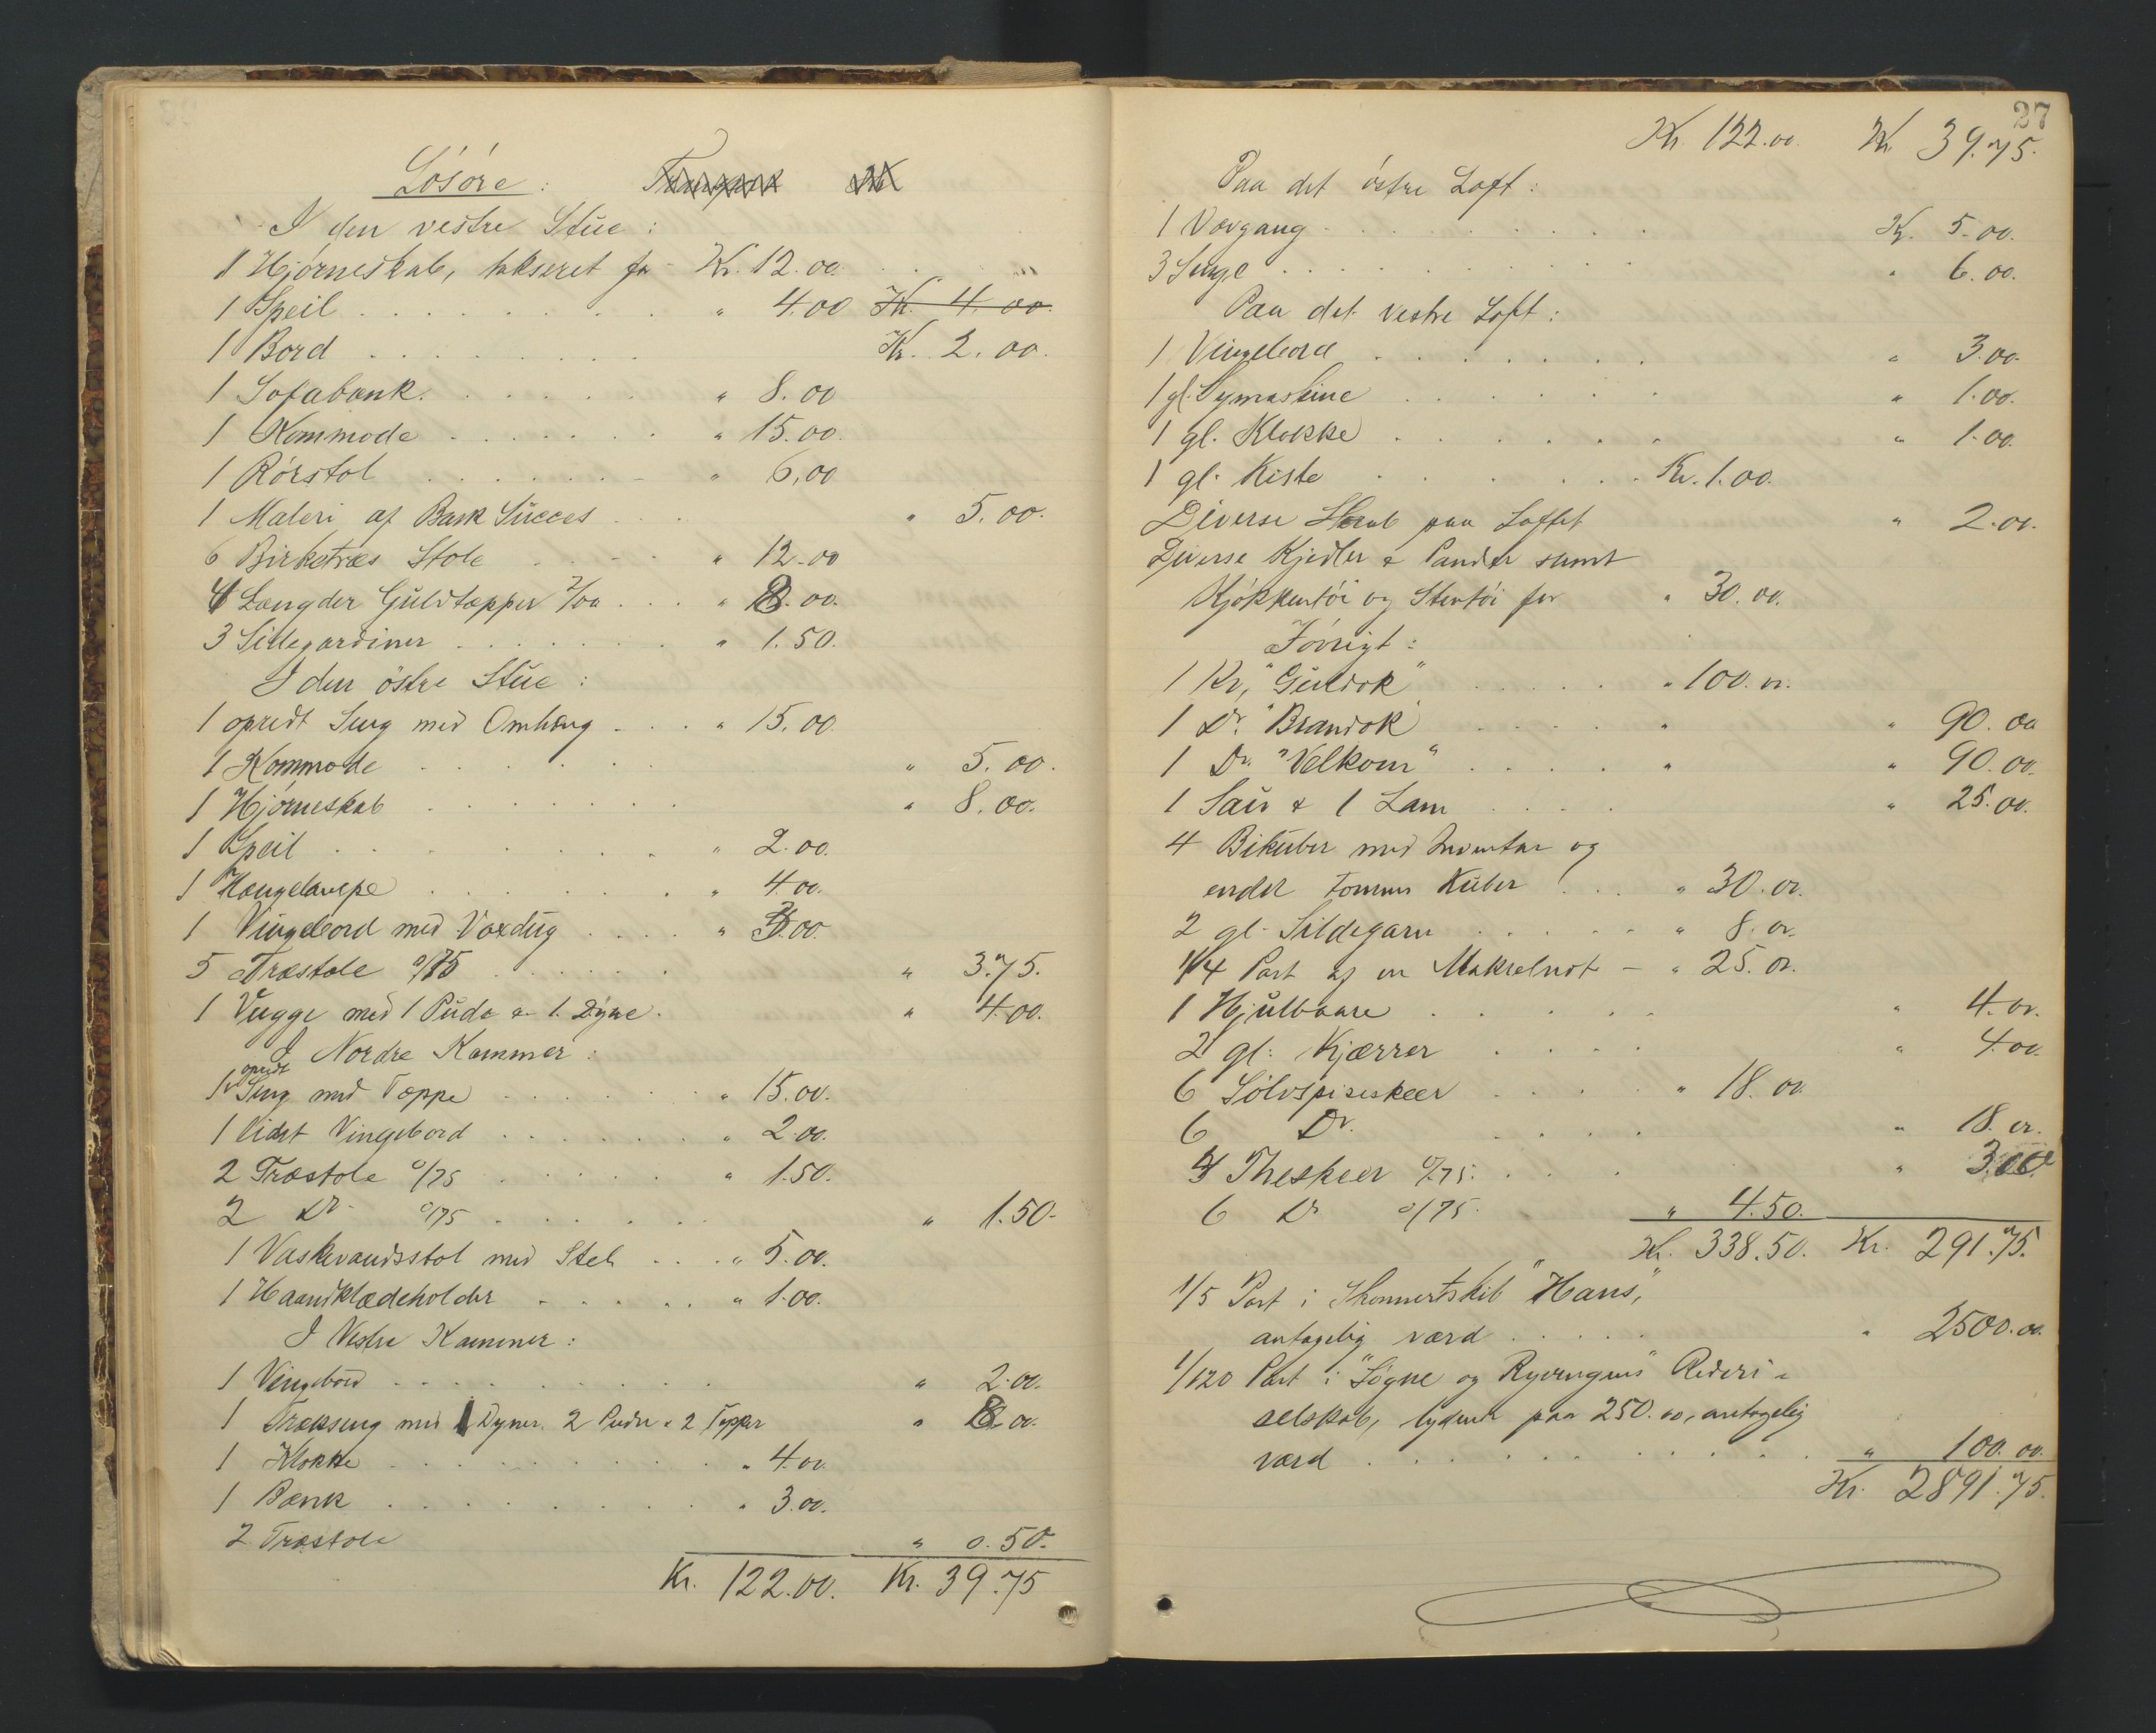 Lösöre :
I den vestre Stue :
1 Hjörneskab, takseret for Kr. 12.00.
1 Speil . . . . " 4.00 Kr. 4.00.
1 Bord . . . . Kr. 2.00.
1 Sofabænk . . . . " 8.00
1 Kommode . . . . " 15.00.
1 Rörstol . . . . " 6.00
1 Maleri af Bark Succes . . . " 5.00.
6 Birketræs Stole . . . " 12.00
4 Længder Gulvtæpper 2/00 . . . " 8.00.
3 Sidegardiner . . . . " 1.50.
I den östre Stue :
1 opredt Seng med Omhæng . . . " 15.00
1 Kommode . . . . " 5.00.
1 Hjörneskab . . . . " 8.00.
1 Speil . . . . " 2.00.
1 Hængelampe . . . . " 4.00.
1 Vingebord med Voxdug . . . . " 3.00.
5 Træstole a/75 . . . . " 3.75.
1 Vugge med 1 Pude & 1 Dyne. " 4.00.
I Nordre Kammer :
1 opredt Seng med Tæppe . . . . " 15.00.
1 lidet Vingebord . . . . " 2.00.
2 Træstole a/75 . . . . " 1.50.
2 Do a/75 . . . . " 1.50.
1 Vaskevandsstol med Stel . . . " 5.00.
1 Haandklædeholder . . . . " 1.00.
I Vestre Kammer :
1 Vingebord . . . . " 2.00.
1 Trækseng med 1 Dyner. 2 Puder & 2 Tæpper " 8.00.
1 Klokke . . . . " 4.00.
1 Bænk . . . . " 3.00.
2 Træstole " 0.50.
Kr. 122.00. Kr. 39.75
27
Kr. 122.00. Kr. 39.75.
Paa det östre Loft :
1 Vævgang . . . . Kr. 5.00.
3 Senge . . . . " 6.00.
Paa det vestre Loft :
1 Vingebord . . . . " 3.00.
1 gl. Symaskine . . . . " 1.00.
1 gl. Klokke . . . . " 1.00.
1 gl. Kiste . . . . Kr. 1.00.
Diverse Skrab paa Loftet " 2.00.
Diverse Kjedler & Pander samt
Kjökkentöi og Stentöi for " 30.00.
Iövrigt :
1 Ko, "Guldok" . . . . " 100.00.
1 Do. "Brandok" . . . . " 90.00
1 Do. "Velkom" . . . . " 90.00.
1 Sau & 1 Lam . . . . " 25.00.
4 Bikuber med Inventar og
endel tomme Kuber . . . " 30.00.
2 gl. Sildegarn . . . . " 8.00.
1/4 Part af en Makrelnot - " 25.00.
1 Hjulbaare . . . . " 4.00.
2 gl. Kjærrer . . . . " 4.00.
6 Sölvspiseskeer . . . . " 18.00.
6 Do. . . . . " 18.00.
4 Theskeer a/75. . . . " 3.00.
6 Do a/75. " 4.50.
Kr. 338.50. Kr. 291.75.
1/5 Part i Skonnertskib "Hans",
antagelig værd . . . . " 2500.00.
1/120 Part i "Sögne og Ryvingens" Rederi-
selskab, lydende paa 250.00, antagelig
værd . . . . " 100.00.
Kr. 2891.75.